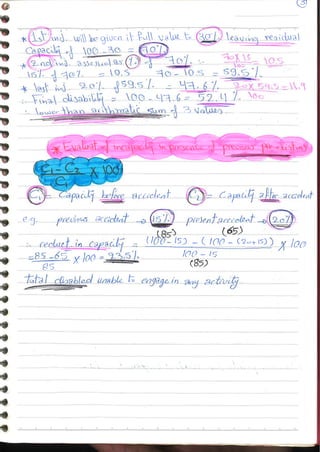 * 1st ind. will be given it full value to 30% leaving residual
capacity of 100-30 = 70%
* 2nd ind. assessed as % of 70% ∴ 70x15/100 = 10.5
15% of 70% = 10.5 70 - 10.5 = 59.5%
* last ind. 20% of 59.5% = 47.6%
∴ Final disability = 100 - 47.6 = 52.4%
∴ lower than arithmatic sum of 3 values.
* Evaluat. of incapacity in presence of previous
C1 - C2 / C1 x 100
C1 = Capacity before accident C2 = Capacity after accident
e.g. previous accedent → 15% present accedent → 20%
(85) (65)
∴ reduct. in capacity = (100-15) - (100-(20+15)) / 100-15 x 100
(85)
= 85-65 / 85 x 100 = 23.5%
total disabled unable to engage in any activity